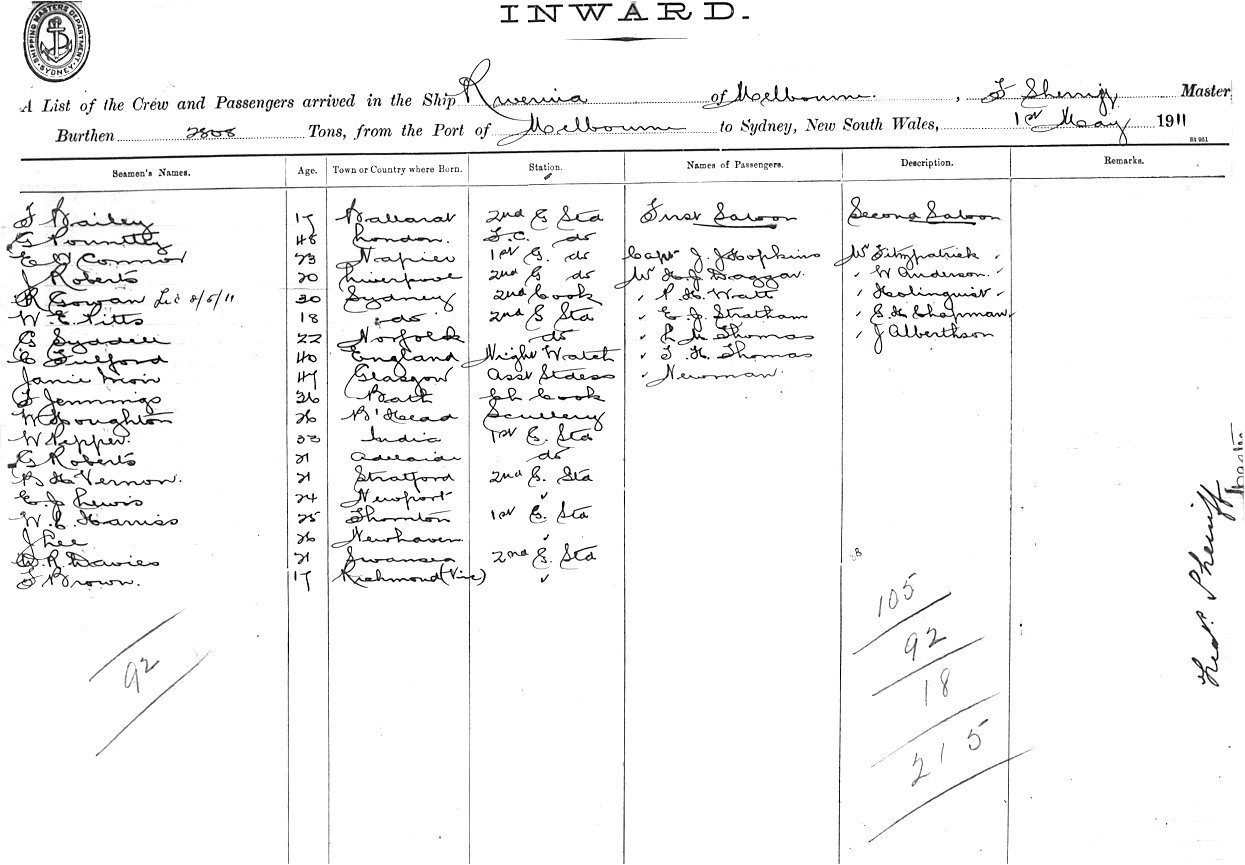 SHIPPING MASTERS DEPARTMENT. SYDNEY.
INWARD.
A List of the Crew and Passengers arrived in the Ship of Melbourne, Master
Burthen 2808 Tons, from the Port of Melbourne to Sydney, New South Wales, 1st May 1911
St 951
Seamen's Names. Age. Town or Country where Born. Station. Names of Passengers. Description. Remarks.
F Bailey 17 Ballarat 2nd G Sta First Saloon Second Saloon
G 48 London. F.C. do
E O'Connor 23 Napier 1st G. do Capt J. J. Hopkins Mr Fitzpatrick
J Roberts 20 Liverpool 2nd G do Mr W Anderson.
R Cowan 30 Sydney 2nd Cook " P. H. Watt " Holinquist
W. E. Pitts 18 do 2nd G Sta " E. J. Stratham " G H Chapman
G Syddell 22 Norfolk do " Thomas " J Alberthson
C Fulford 40 England Night Watch " F. H. Thomas
Janie 47 Glasgow Asst Stdess " Newman
F Jennings 36 Bath Ch Cook
W Houghton 26 B'Head Scullery
W Pepper. 33 India 1st G. Sta
G Roberts 21 Adelaide do
B H Vernon. 21 Stratford 2nd G. Sta
E. J. Lewis 24 Newport "
W. C. Harriss 25 Thornton 1st G. Sta
J Lee 26 Newhaven "
D. R. Davies 21 Swansea 2nd G. Sta
F Brown. 17 Richmond (Vic) "
105
92
18
215
92